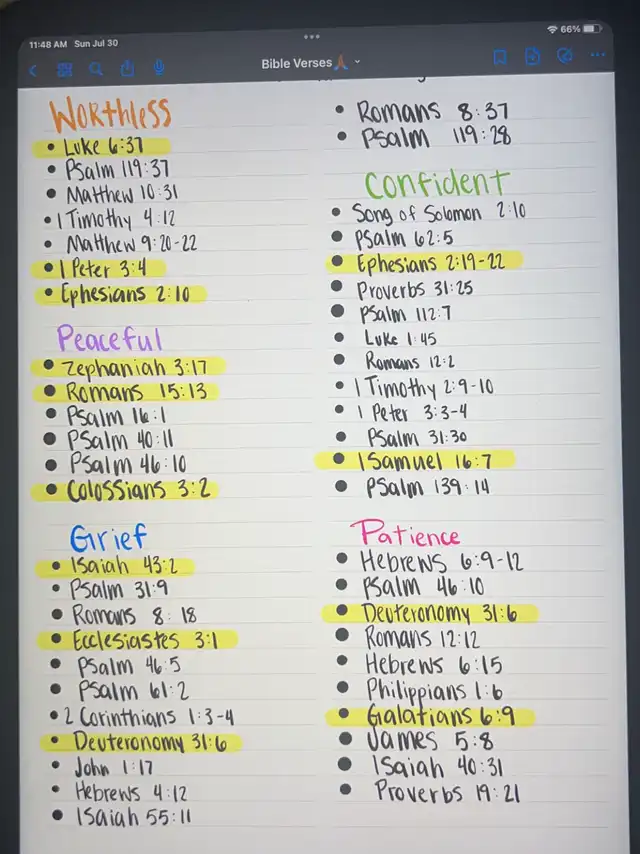 11:48 AM Sun Jul 30
66%
Bible Verses
Worthless
• Luke 6:37
• Psalm 119:37
• Matthew 10:31
• 1 Timothy 4:12
• Matthew 9:20-22
• 1 Peter 3:4
• Ephesians 2:10
Peaceful
• Zephaniah 3:17
• Romans 15:13
• Psalm 16:1
• Psalm 40:11
• Psalm 46:10
• Colossians 3:2
Grief
• Isaiah 43:2
• Psalm 31:9
• Romans 8:18
• Ecclesiastes 3:1
• Psalm 46:5
• Psalm 61:2
• 2 Corinthians 1:3-4
• Deuteronomy 31:6
• John 1:17
• Hebrews 4:12
• Isaiah 55:11
• Romans 8:37
• Psalm 119:28
Confident
• Song of Solomon 2:10
• Psalm 62:5
• Ephesians 2:19-22
• Proverbs 31:25
• Psalm 112:7
• Luke 1:45
• Romans 12:2
• 1 Timothy 2:9-10
• 1 Peter 3:3-4
• Psalm 31:30
• 1 Samuel 16:7
• Psalm 139:14
Patience
• Hebrews 6:9-12
• Psalm 46:10
• Deuteronomy 31:6
• Romans 12:12
• Hebrews 6:15
• Philippians 1:6
• Galatians 6:9
• James 5:8
• Isaiah 40:31
• Proverbs 19:21